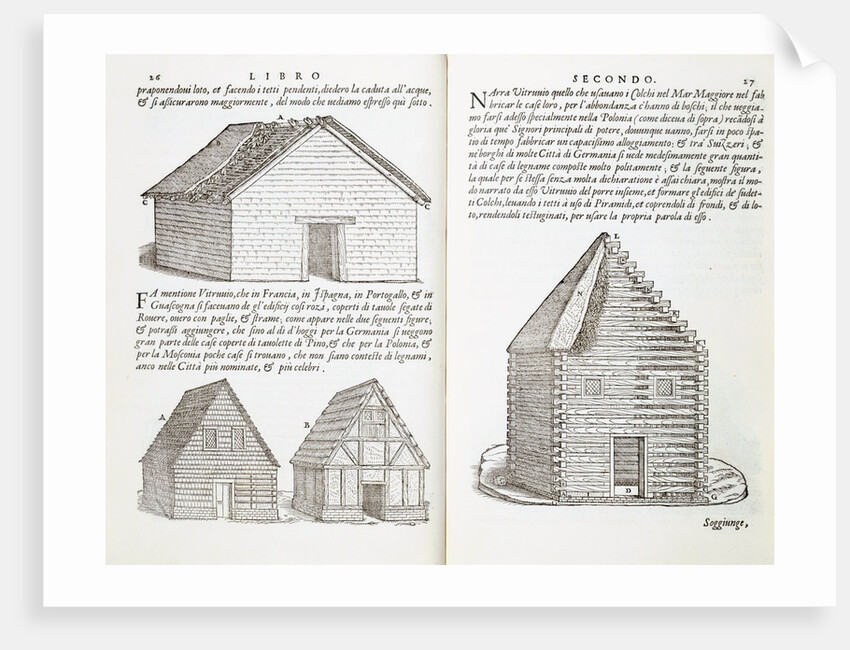 26 LIBRO
praponendoui loto, et facendo i tetti pendenti, diedero la caduta all'acque,
& si assicurarono maggiormente, del modo che uediamo espresso quì sotto.
A
D
C
C
FA mentione Vitruuio, che in Francia, in Ispagna, in Portogallo, & in
Guascogna si faceuano de gl'edificij così roza, coperti di tauole segate di
Rouere, ouero con paglie, & strame; come appare nelle due seguenti figure;
& potrassi aggiungere, che sino al dì d'hoggi per la Germania si ueggono
gran parte delle case coperte di tauolette di Pino, & che per la Polonia, &
per la Moscouia poche case si trouano, che non siano conteste di legnami,
anco nelle Città più nominate, & più celebri.
A
B
SECONDO. 27
NArra Vitruuio quello che usauano i Colchi nel Mar Maggiore nel fab
bricar le case loro, per l'abbondanza c'hanno di boschi; il che ueggia-
mo farsi adesso specialmente nella Polonia (come diceua di sopra) recādosi à
gloria que' Signori principali di potere, dounque uanno, farsi in poco spa-
tio di tempo fabbricar un capacissimo alloggiamento: & tra' Suizzeri; &
ne' borghi di molte Città di Germania si uede medesimamente gran quanti-
tà di case di legname composte molto politamente; & la seguente figura,
la quale per se stessa senza molta dichiaratione è assai chiara, mostra il mo-
do narrato da esso Vitruuio del porre insieme, et formare gl'edifici de' sudet-
ti Colchi, leuando i tetti à uso di Piramidi, et coprendoli di frondi, & di lo-
to, rendendoli testuginati, per usare la propria parola di esso.
L
N
D
G
Soggiunge,